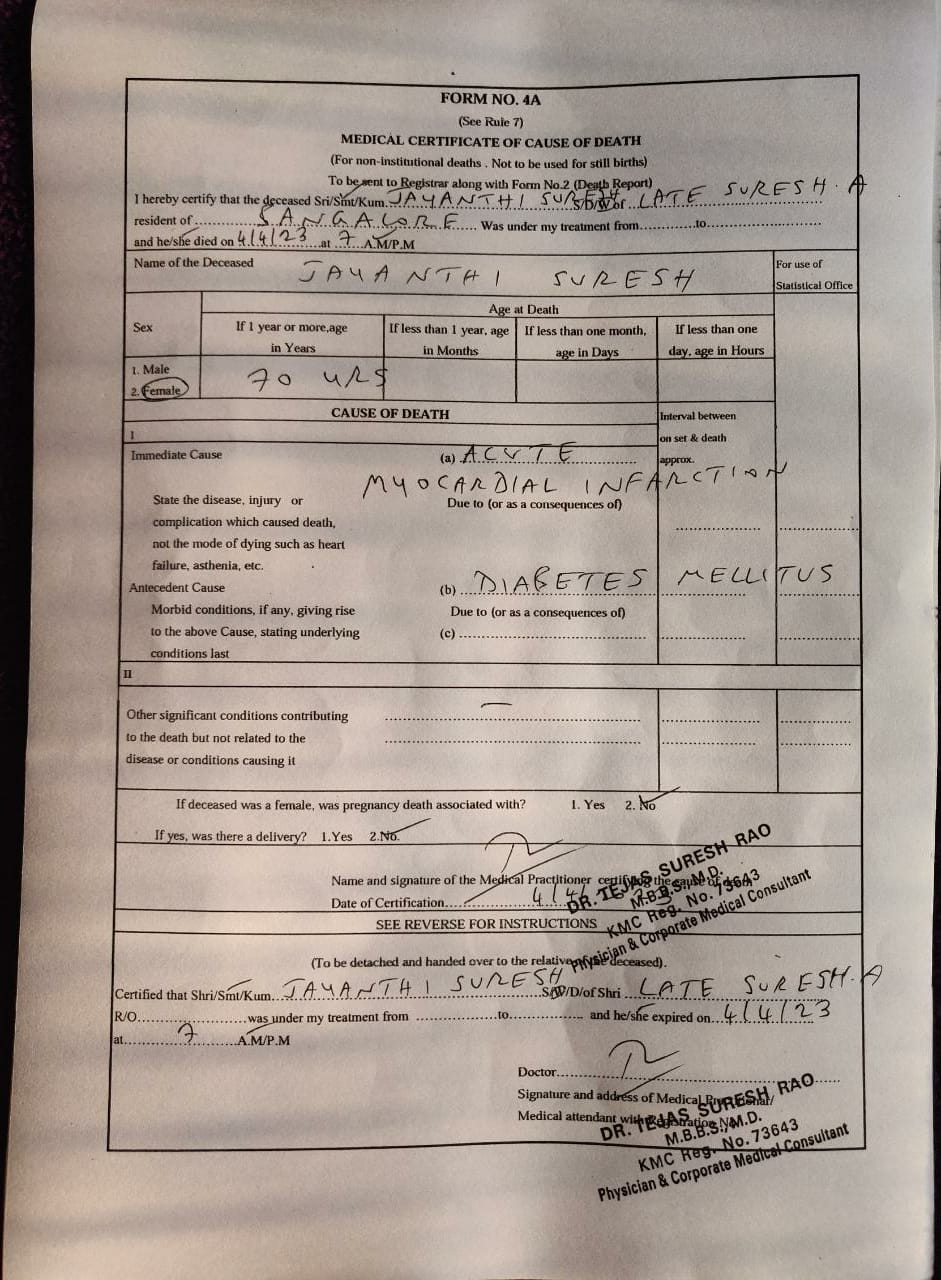 FORM NO. 4A
(See Rule 7)
MEDICAL CERTIFICATE OF CAUSE OF DEATH
(For non-institutional deaths . Not to be used for still births)
To be sent to Registrar along with Form No.2 (Death Report)
I hereby certify that the deceased Sri/Smt/Kum. JAYANTHI SURESH S/D/W of LATE SURESH. A
resident of SANGALORE Was under my treatment from..............to..............................
and he/she died on 4/4/23 at 7 A.M/P.M
Name of the Deceased JAYANTHI SURESH For use of Statistical Office
Age at Death
Sex If 1 year or more,age in Years If less than 1 year, age in Months If less than one month, age in Days If less than one day, age in Hours
1. Male
2. Female 70 YRS
CAUSE OF DEATH Interval between on set & death approx.
I
Immediate Cause (a) ACUTE
MYOCARDIAL INFARCTION
State the disease, injury or Due to (or as a consequences of)
complication which caused death,
not the mode of dying such as heart
failure, asthenia, etc.
Antecedent Cause (b) DIABETES MELLITUS
Morbid conditions, if any, giving rise Due to (or as a consequences of)
to the above Cause, stating underlying (c)
conditions last
II
Other significant conditions contributing —
to the death but not related to the
disease or conditions causing it
If deceased was a female, was pregnancy death associated with? 1. Yes 2. No
If yes, was there a delivery? 1.Yes 2.No.
Name and signature of the Medical Practitioner certifying the cause of
Date of Certification 4/4/
DR. TEJAS SURESH RAO
M.B.B.S., M.D.
KMC Reg. No. 73643
Physician & Corporate Medical Consultant
SEE REVERSE FOR INSTRUCTIONS
(To be detached and handed over to the relative of the deceased).
Certified that Shri/Smt/Kum. JAYANTHI SURESH S/W/D/of Shri LATE SURESH. A
R/O........................was under my treatment from .................to............... and he/she expired on 4/4/23
at 7 A.M/P.M
Doctor
Signature and address of Medical
Medical attendant with Registration No.
DR. TEJAS SURESH RAO
M.B.B.S., M.D.
KMC Reg. No. 73643
Physician & Corporate Medical Consultant